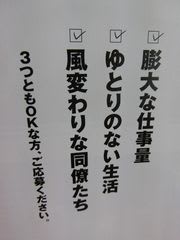 ☑ 膨大な仕事量
☑ ゆとりのない生活
☑ 風変わりな同僚たち
3つともOKな方、ご応募ください。